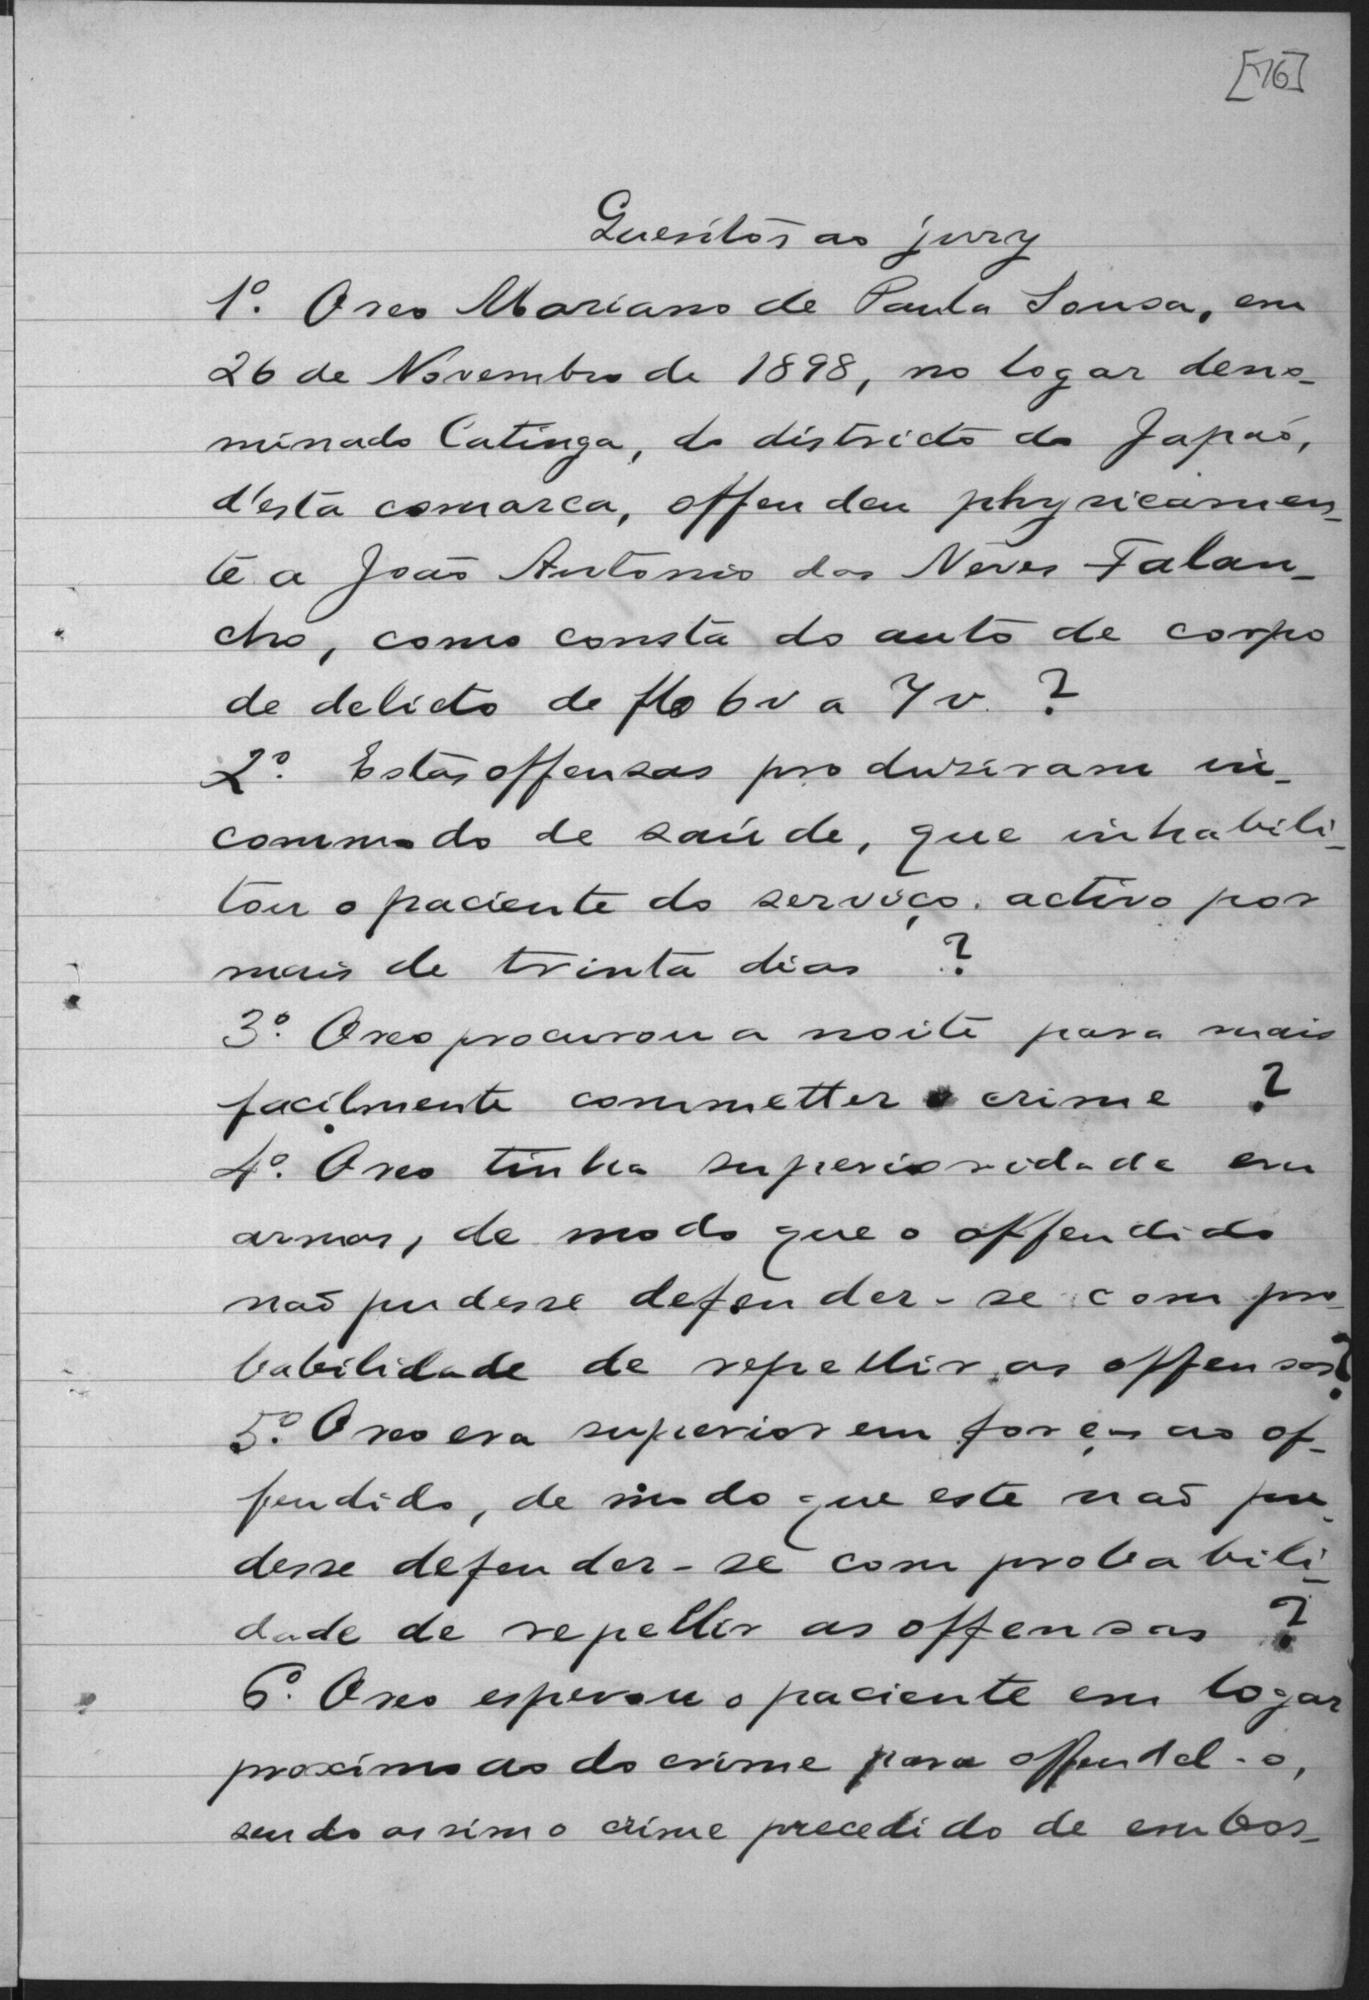 [76]
Quesitos ao jury
1º. O reo Mariano de Paula Sousa, em
26 de Novembro de 1898, no logar deno-
minado Catinga, do districto do Japaõ,
d'esta comarca, offendeu physicamen-
te a Joaõ Antonio das Neves Falan-
cho, como consta do auto de corpo
de delicto de fls 6v a 7v. ?
2º. Estas offensas produsiram in-
commodo de saúde, que inhabili-
tou o paciente do serviço activo por
mais de trinta dias ?
3º. O reo procurou a noite para mais
facilmente commetter o crime ?
4º. O reo tinha superioridade em
armas, de modo que o offendido
naõ pudesse defender-se com pro-
babilidade de repellir as offensas?
5º. O reo era superior em forças ao of-
fendido, de modo que este naõ pu-
desse defender-se com probabili-
dade de repellir as offensas ?
6º. O reo esperou o paciente em logar
proximo ao do crime para offendel-o,
sendo assim o crime precedido de embos-